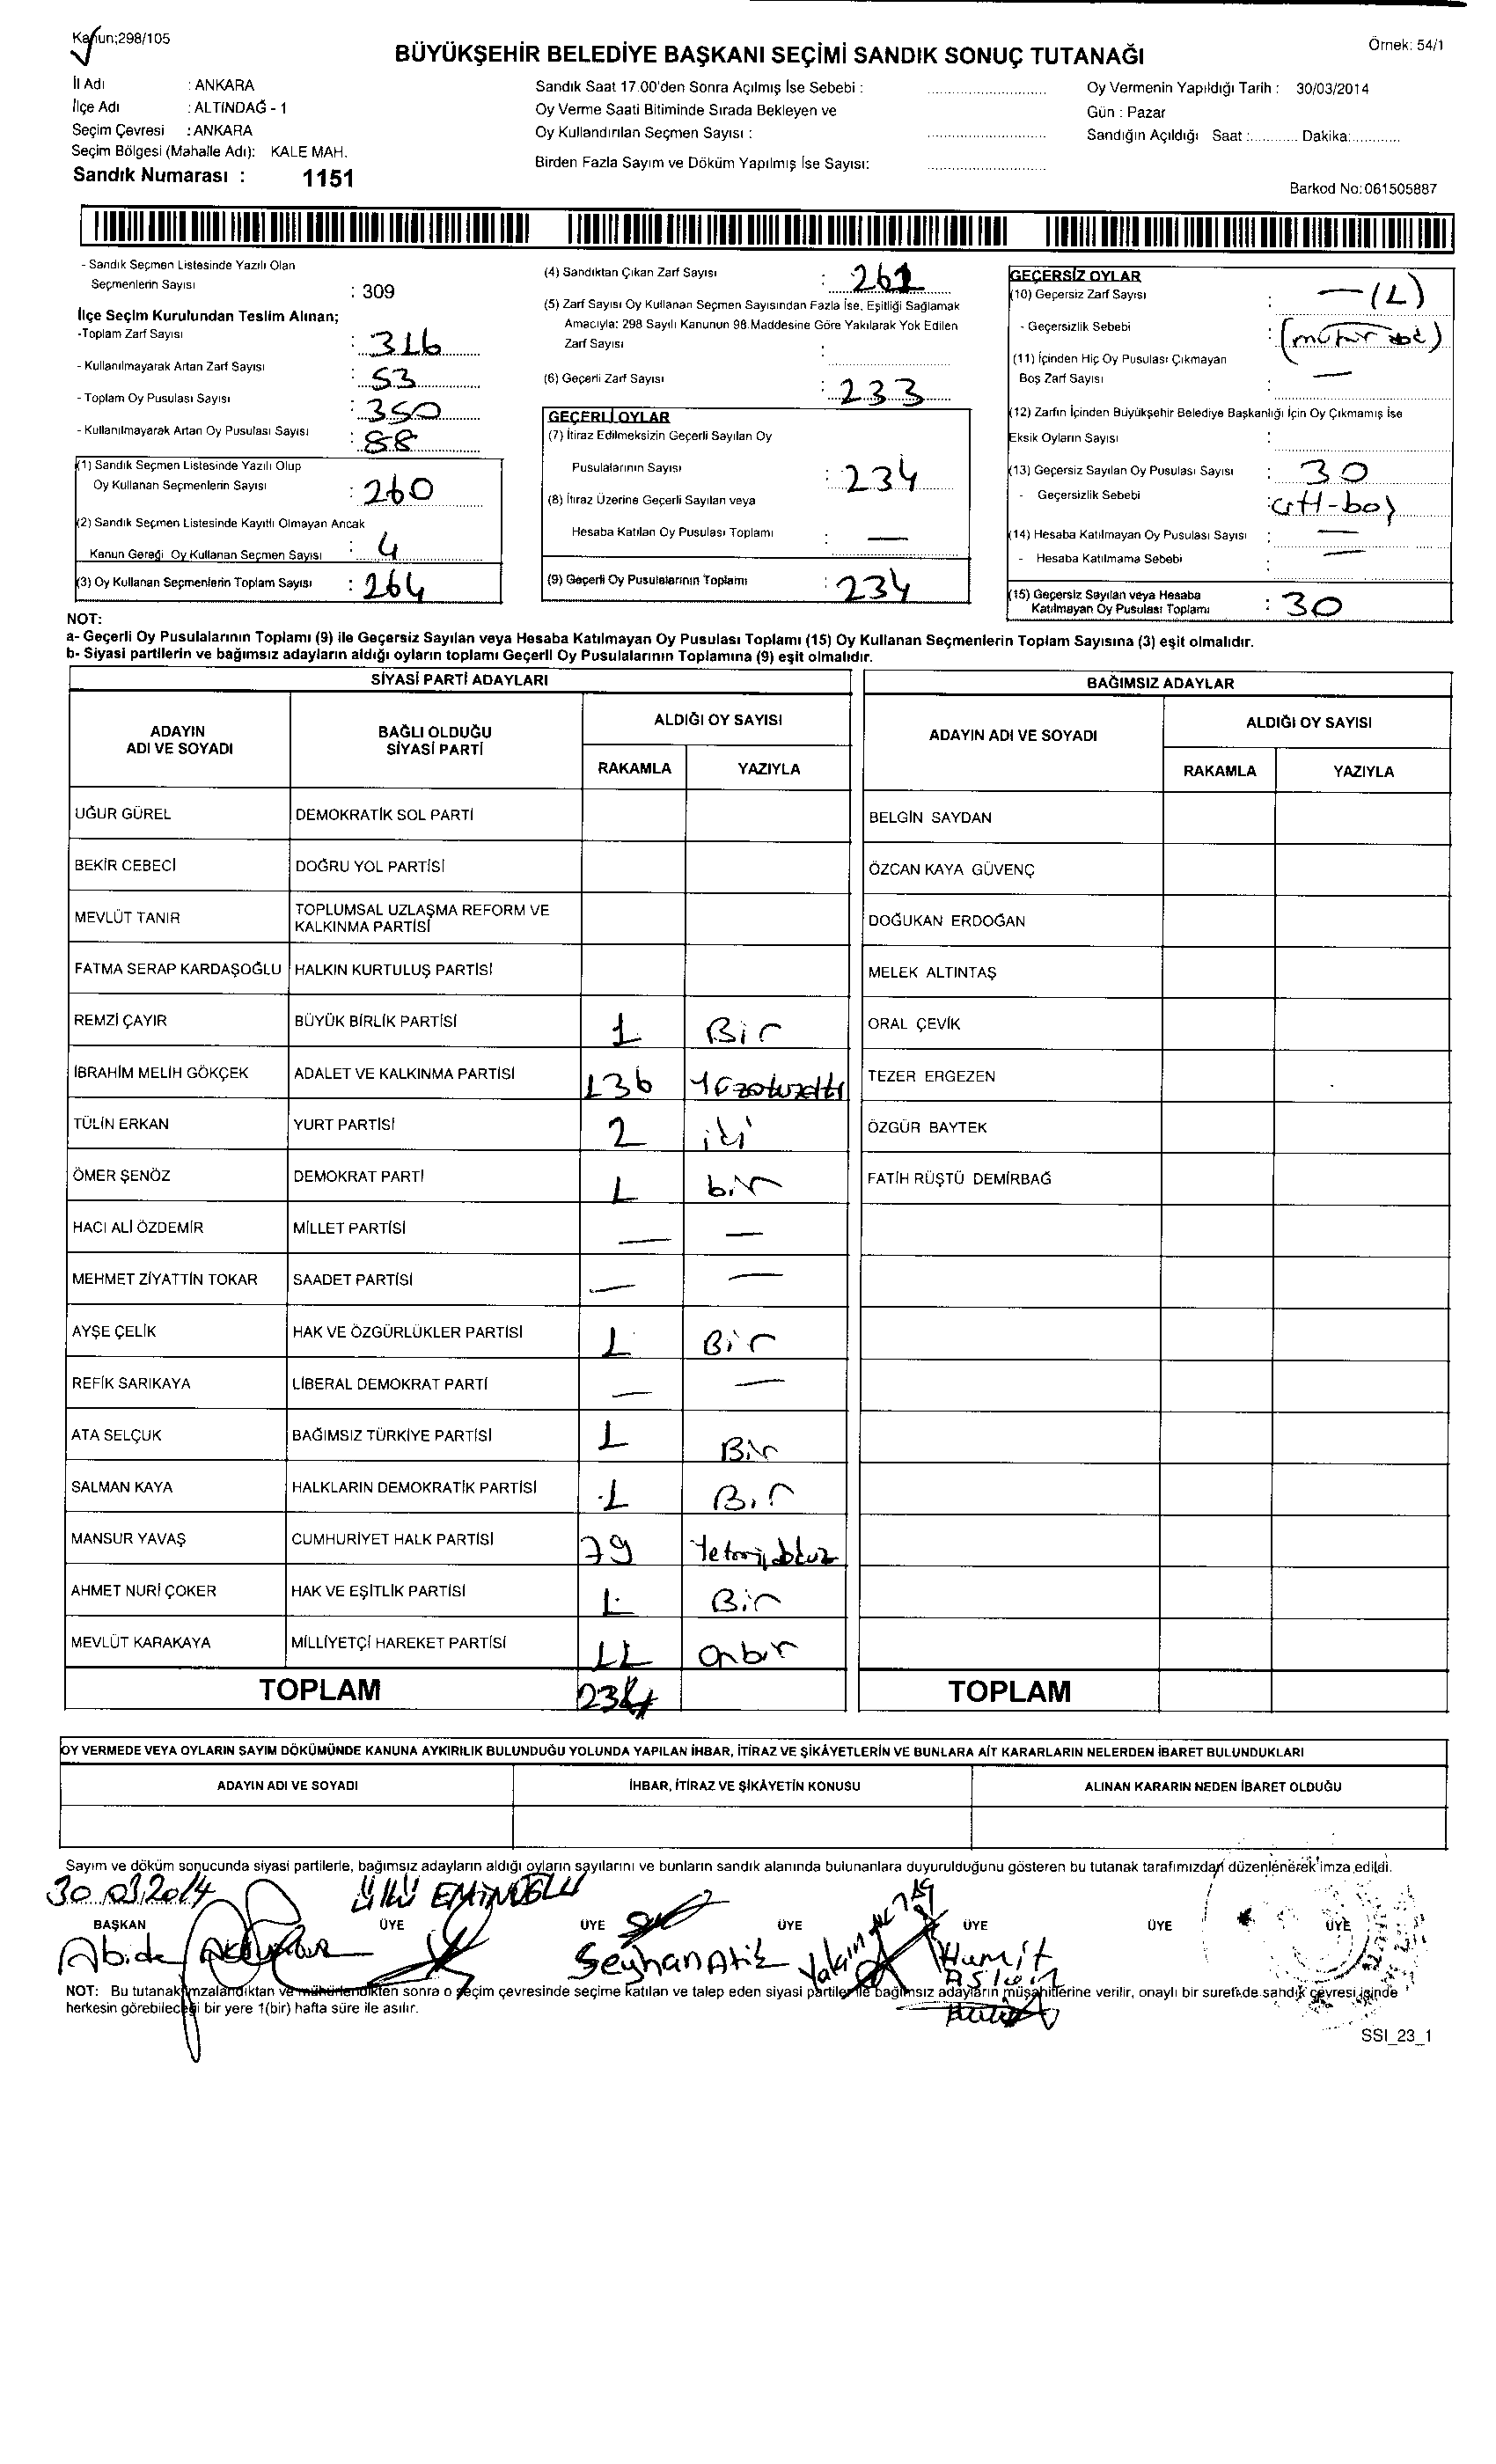 Kanun;298/105
Örnek: 54/1
BÜYÜKŞEHİR BELEDİYE BAŞKANI SEÇİMİ SANDIK SONUÇ TUTANAĞI
İl Adı : ANKARA
İlçe Adı : ALTINDAĞ - 1
Seçim Çevresi : ANKARA
Seçim Bölgesi (Mahalle Adı): KALE MAH.
Sandık Numarası : 1151
Sandık Saat 17.00'den Sonra Açılmış İse Sebebi :
Oy Verme Saati Bitiminde Sırada Bekleyen ve
Oy Kullandırılan Seçmen Sayısı :
Birden Fazla Sayım ve Döküm Yapılmış İse Sayısı:
Oy Vermenin Yapıldığı Tarih : 30/03/2014
Gün : Pazar
Sandığın Açıldığı Saat :............ Dakika:............
Barkod No:061505887
- Sandık Seçmen Listesinde Yazılı Olan
Seçmenlerin Sayısı : 309
İlçe Seçim Kurulundan Teslim Alınan;
-Toplam Zarf Sayısı : 316
- Kullanılmayarak Artan Zarf Sayısı : 53
- Toplam Oy Pusulası Sayısı : 350
- Kullanılmayarak Artan Oy Pusulası Sayısı : 88
(1) Sandık Seçmen Listesinde Yazılı Olup
Oy Kullanan Seçmenlerin Sayısı : 260
(2) Sandık Seçmen Listesinde Kayıtlı Olmayan Ancak
Kanun Gereği Oy Kullanan Seçmen Sayısı : 4
(3) Oy Kullanan Seçmenlerin Toplam Sayısı : 264
(4) Sandıktan Çıkan Zarf Sayısı : 261
(5) Zarf Sayısı Oy Kullanan Seçmen Sayısından Fazla İse, Eşitliği Sağlamak
Amacıyla: 298 Sayılı Kanunun 98.Maddesine Göre Yakılarak Yok Edilen
Zarf Sayısı :
(6) Geçerli Zarf Sayısı : 233
GEÇERLİ OYLAR
(7) İtiraz Edilmeksizin Geçerli Sayılan Oy
Pusulalarının Sayısı : 234
(8) İtiraz Üzerine Geçerli Sayılan veya
Hesaba Katılan Oy Pusulası Toplamı : —
(9) Geçerli Oy Pusulalarının Toplamı : 234
GEÇERSİZ OYLAR
(10) Geçersiz Zarf Sayısı : — (1)
- Geçersizlik Sebebi :
(11) İçinden Hiç Oy Pusulası Çıkmayan
Boş Zarf Sayısı : —
(12) Zarfın İçinden Büyükşehir Belediye Başkanlığı İçin Oy Çıkmamış İse
Eksik Oyların Sayısı :
(13) Geçersiz Sayılan Oy Pusulası Sayısı : 30
- Geçersizlik Sebebi :
(14) Hesaba Katılmayan Oy Pusulası Sayısı : —
- Hesaba Katılmama Sebebi : —
(15) Geçersiz Sayılan veya Hesaba
Katılmayan Oy Pusulası Toplamı : 30
NOT:
a- Geçerli Oy Pusulalarının Toplamı (9) ile Geçersiz Sayılan veya Hesaba Katılmayan Oy Pusulası Toplamı (15) Oy Kullanan Seçmenlerin Toplam Sayısına (3) eşit olmalıdır.
b- Siyasi partilerin ve bağımsız adayların aldığı oyların toplamı Geçerli Oy Pusulalarının Toplamına (9) eşit olmalıdır.
SİYASİ PARTİ ADAYLARI
ADAYIN ADI VE SOYADI
BAĞLI OLDUĞU SİYASİ PARTİ
ALDIĞI OY SAYISI
RAKAMLA YAZIYLA
UĞUR GÜREL DEMOKRATİK SOL PARTİ
BEKİR CEBECİ DOĞRU YOL PARTİSİ
MEVLÜT TANIR TOPLUMSAL UZLAŞMA REFORM VE KALKINMA PARTİSİ
FATMA SERAP KARDAŞOĞLU HALKIN KURTULUŞ PARTİSİ
REMZİ ÇAYIR BÜYÜK BİRLİK PARTİSİ 1 Bir
İBRAHİM MELİH GÖKÇEK ADALET VE KALKINMA PARTİSİ 136 Yüzotuzaltı
TÜLİN ERKAN YURT PARTİSİ 2 iki
ÖMER ŞENÖZ DEMOKRAT PARTİ 1 bir
HACI ALİ ÖZDEMİR MİLLET PARTİSİ — —
MEHMET ZİYATTİN TOKAR SAADET PARTİSİ — —
AYŞE ÇELİK HAK VE ÖZGÜRLÜKLER PARTİSİ 1 Bir
REFİK SARIKAYA LİBERAL DEMOKRAT PARTİ — —
ATA SELÇUK BAĞIMSIZ TÜRKİYE PARTİSİ 1 Bir
SALMAN KAYA HALKLARIN DEMOKRATİK PARTİSİ 1 Bir
MANSUR YAVAŞ CUMHURİYET HALK PARTİSİ 79 Yetmişdokuz
AHMET NURİ ÇOKER HAK VE EŞİTLİK PARTİSİ 1 Bir
MEVLÜT KARAKAYA MİLLİYETÇİ HAREKET PARTİSİ 11 Onbir
TOPLAM 234
BAĞIMSIZ ADAYLAR
ADAYIN ADI VE SOYADI
ALDIĞI OY SAYISI
RAKAMLA YAZIYLA
BELGİN SAYDAN
ÖZCAN KAYA GÜVENÇ
DOĞUKAN ERDOĞAN
MELEK ALTINTAŞ
ORAL ÇEVİK
TEZER ERGEZEN
ÖZGÜR BAYTEK
FATİH RÜŞTÜ DEMİRBAĞ
TOPLAM
OY VERMEDE VEYA OYLARIN SAYIM DÖKÜMÜNDE KANUNA AYKIRILIK BULUNDUĞU YOLUNDA YAPILAN İHBAR, İTİRAZ VE ŞİKÂYETLERİN VE BUNLARA AİT KARARLARIN NELERDEN İBARET BULUNDUKLARI
ADAYIN ADI VE SOYADI İHBAR, İTİRAZ VE ŞİKÂYETİN KONUSU ALINAN KARARIN NEDEN İBARET OLDUĞU
Sayım ve döküm sonucunda siyasi partilerle, bağımsız adayların aldığı oyların sayılarını ve bunların sandık alanında bulunanlara duyurulduğunu gösteren bu tutanak tarafımızdan düzenlenerek imza edildi.
30.03.2014 ÜLKÜ EMİNOĞLU
BAŞKAN ÜYE ÜYE ÜYE ÜYE ÜYE ÜYE
Abide Seyhan Atik Yalçın Hamit
Aslan
NOT: Bu tutanak imzalandıktan ve mühürlendikten sonra o seçim çevresinde seçime katılan ve talep eden siyasi partiler ile bağımsız adayların müşahitlerine verilir, onaylı bir sureti de sandık çevresi içinde
herkesin görebileceği bir yere 1(bir) hafta süre ile asılır.
SSI_23_1